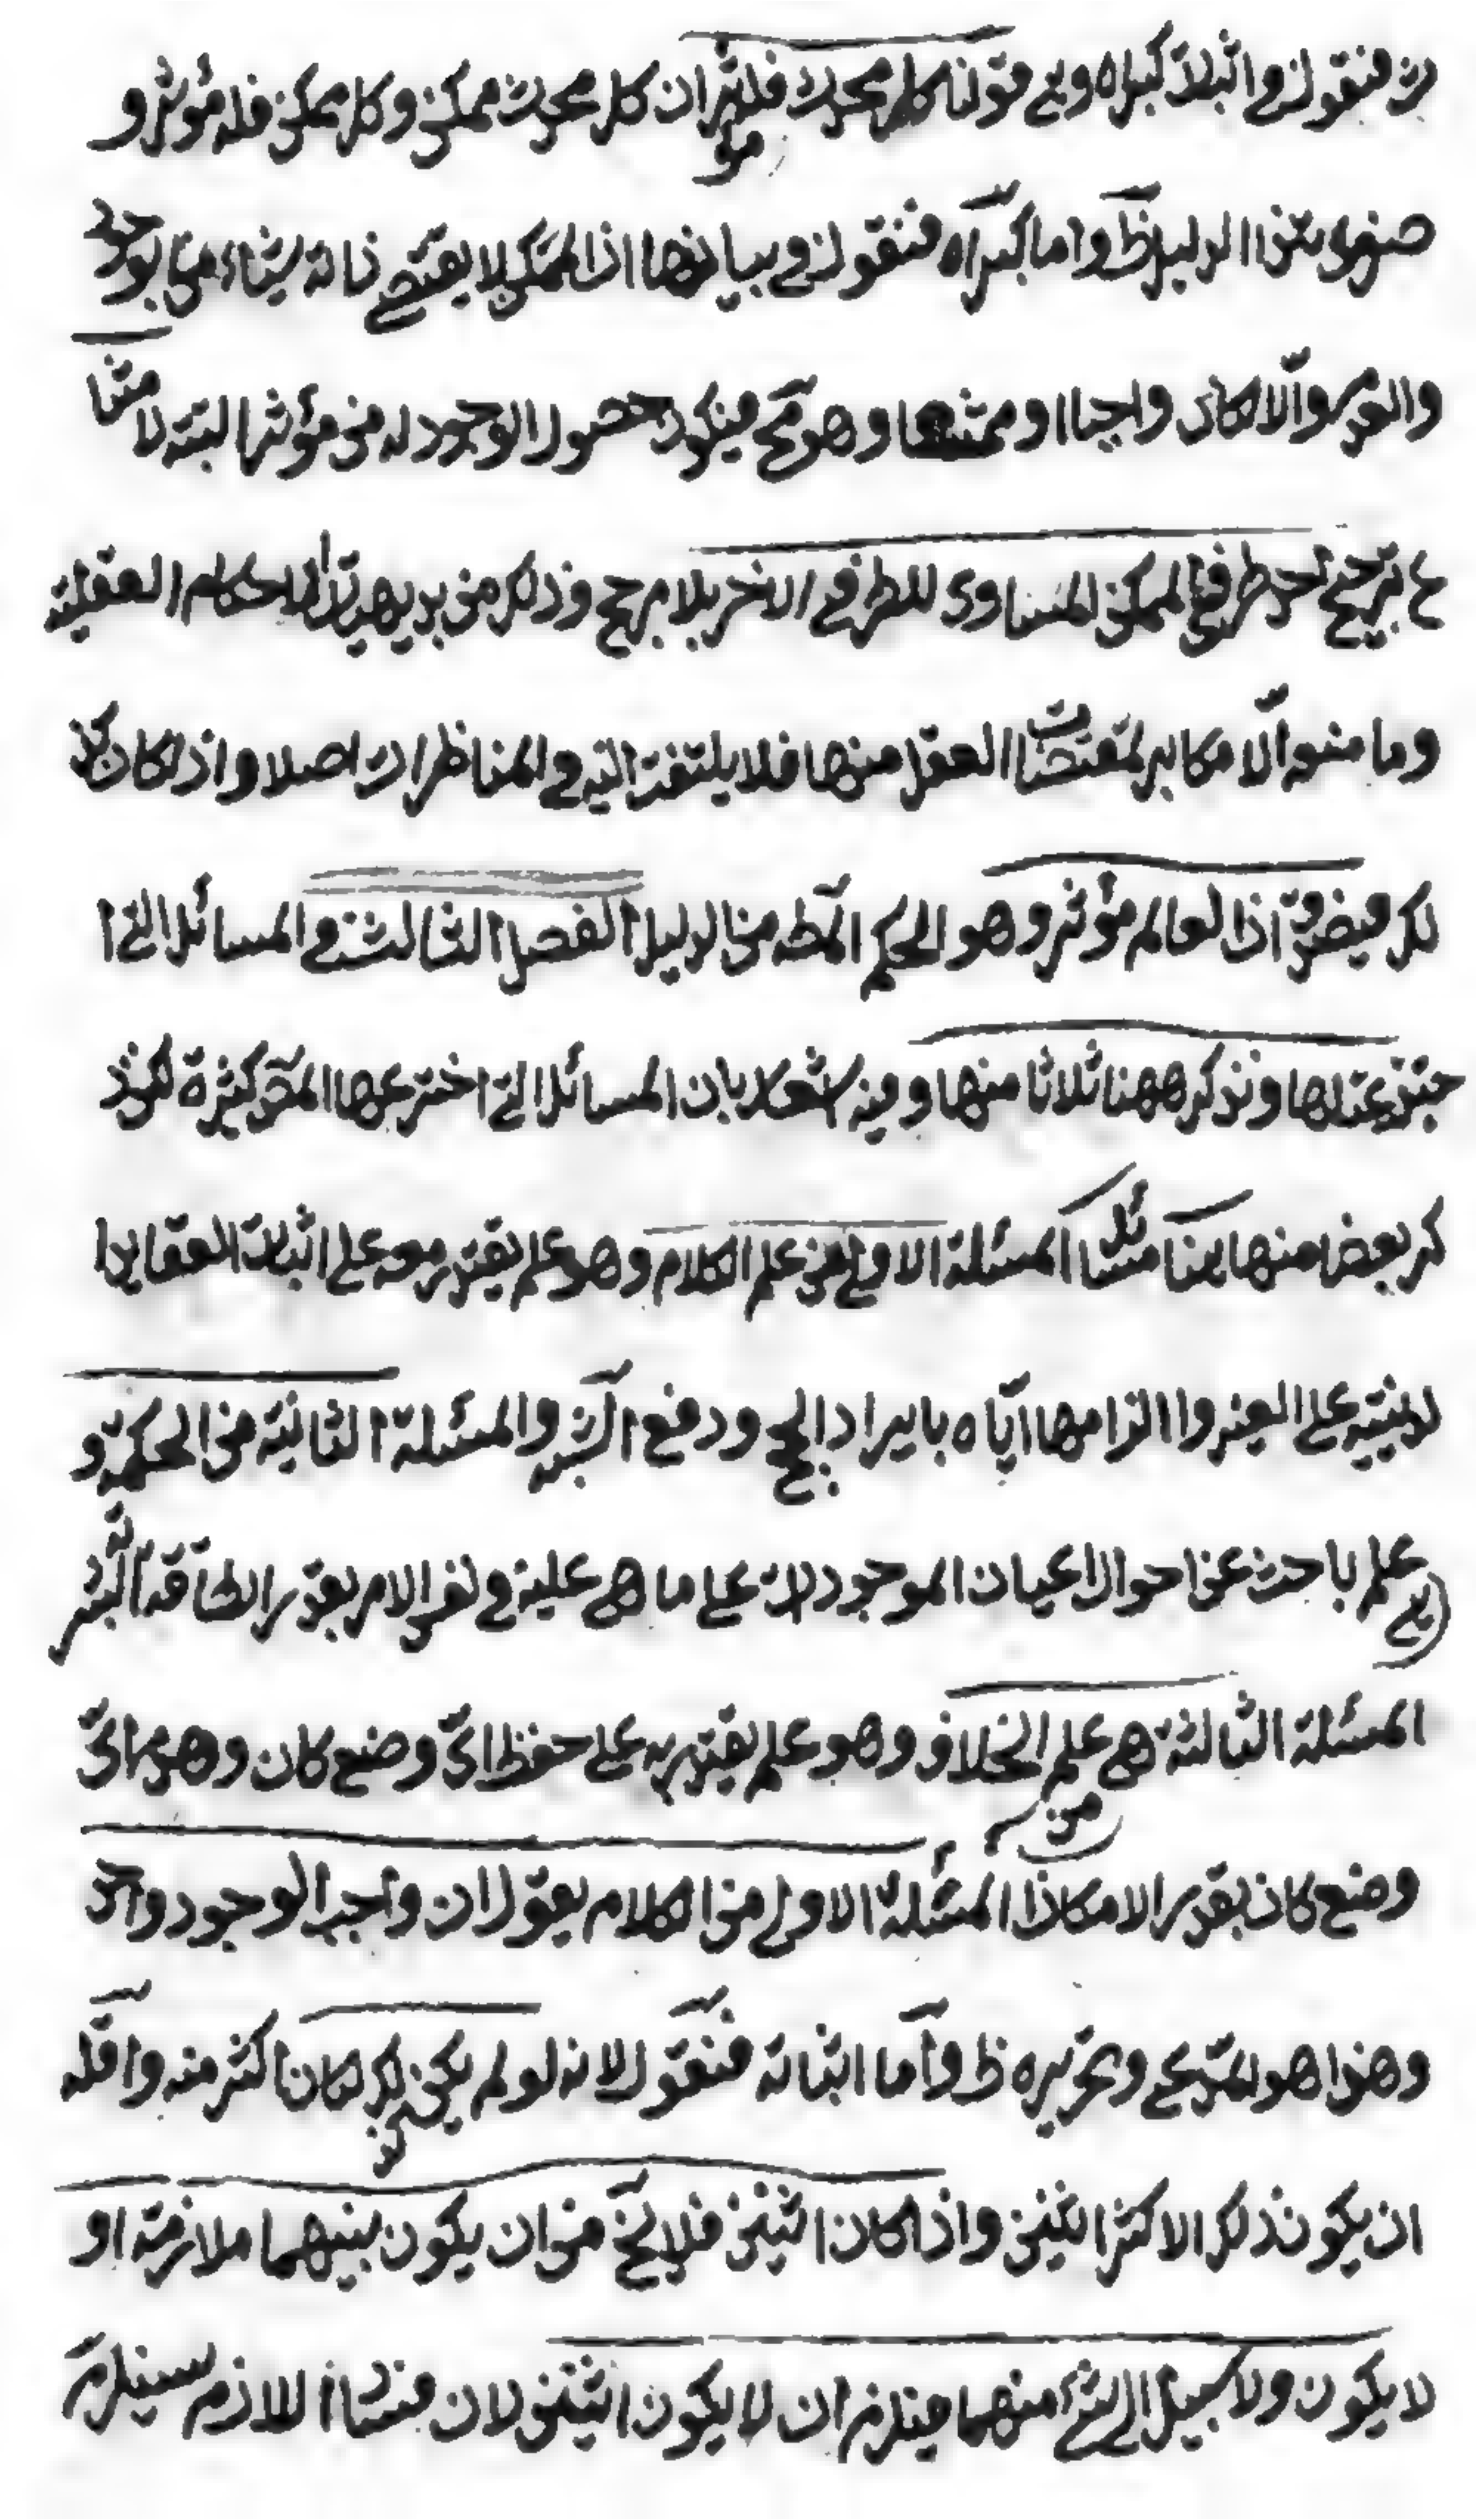 ث فنقول في اثبات كبراه وهي قولنا كل محدث فله مؤثر ان كل محدث ممكن وكل ممكن فله مؤثر و
صغرى هذا الدليل ظ واما كبراه فنقول في بيانها اذا الممكن لا يقتضي ذاته شيئا من الوجود
والعدم والا لكان واجبا او ممتنعا وهو مح فيكون حصول الوجود له من مؤثر البتة لامتنا
ع ترجيح احد طرفي الممكن المساوى للطرف الاخر بلا مرجح وذلك من بديهية الاحكام العقلية
وما منعه الا مكابر لمقتضيات العقل منها فلا يلتفت اليه في المناظرات اصلا واذا كان كذ
لك فيضرورة اذا لعالم مؤثر وهو الحكم المط من الدليل الفصل الثالث في المسائل التي ا
خترعتها ونذكر ههنا ثلاثا منها وفيه اشعار بان المسائل التي اخترعها المص كثيرة لكن ذ
كر بعض منها ههنا مسائل المسئلة الاولى من علم الكلام وهو علم يقتدر معه على اثبات العقايد ا
لدينية على الغير والزامها اياه بايراد الحجج ودفع الشبه والمسئلة الثانية من الحكمة و
هي علم باحث عن احوال اعيان الموجودات على ما هي عليه في نفس الامر بقدر الطاقة البشرية
المسئلة الثالثة هي من علم الخلاف وهو علم يقتدر به على حفظ اي وضع كان وهدم اي
وضع كان بقدر الامكان المسئلة الاولى من الكلام يقول ان واجب الوجود واحد
وهذا هو المدعى وتحريره ظ واما اثباته فنقول لانه لو لم يكن كذلك لكان اكثر منه واقله
ان يكون ذلك الاكثر اثنين واذا كان اثنين فلا يخ من ان يكون بينهما ملازمة او
لا يكون ولا سبيل الى شئ منهما فيلزم ان لا يكون اثنين لان فساد اللازم يستلزم